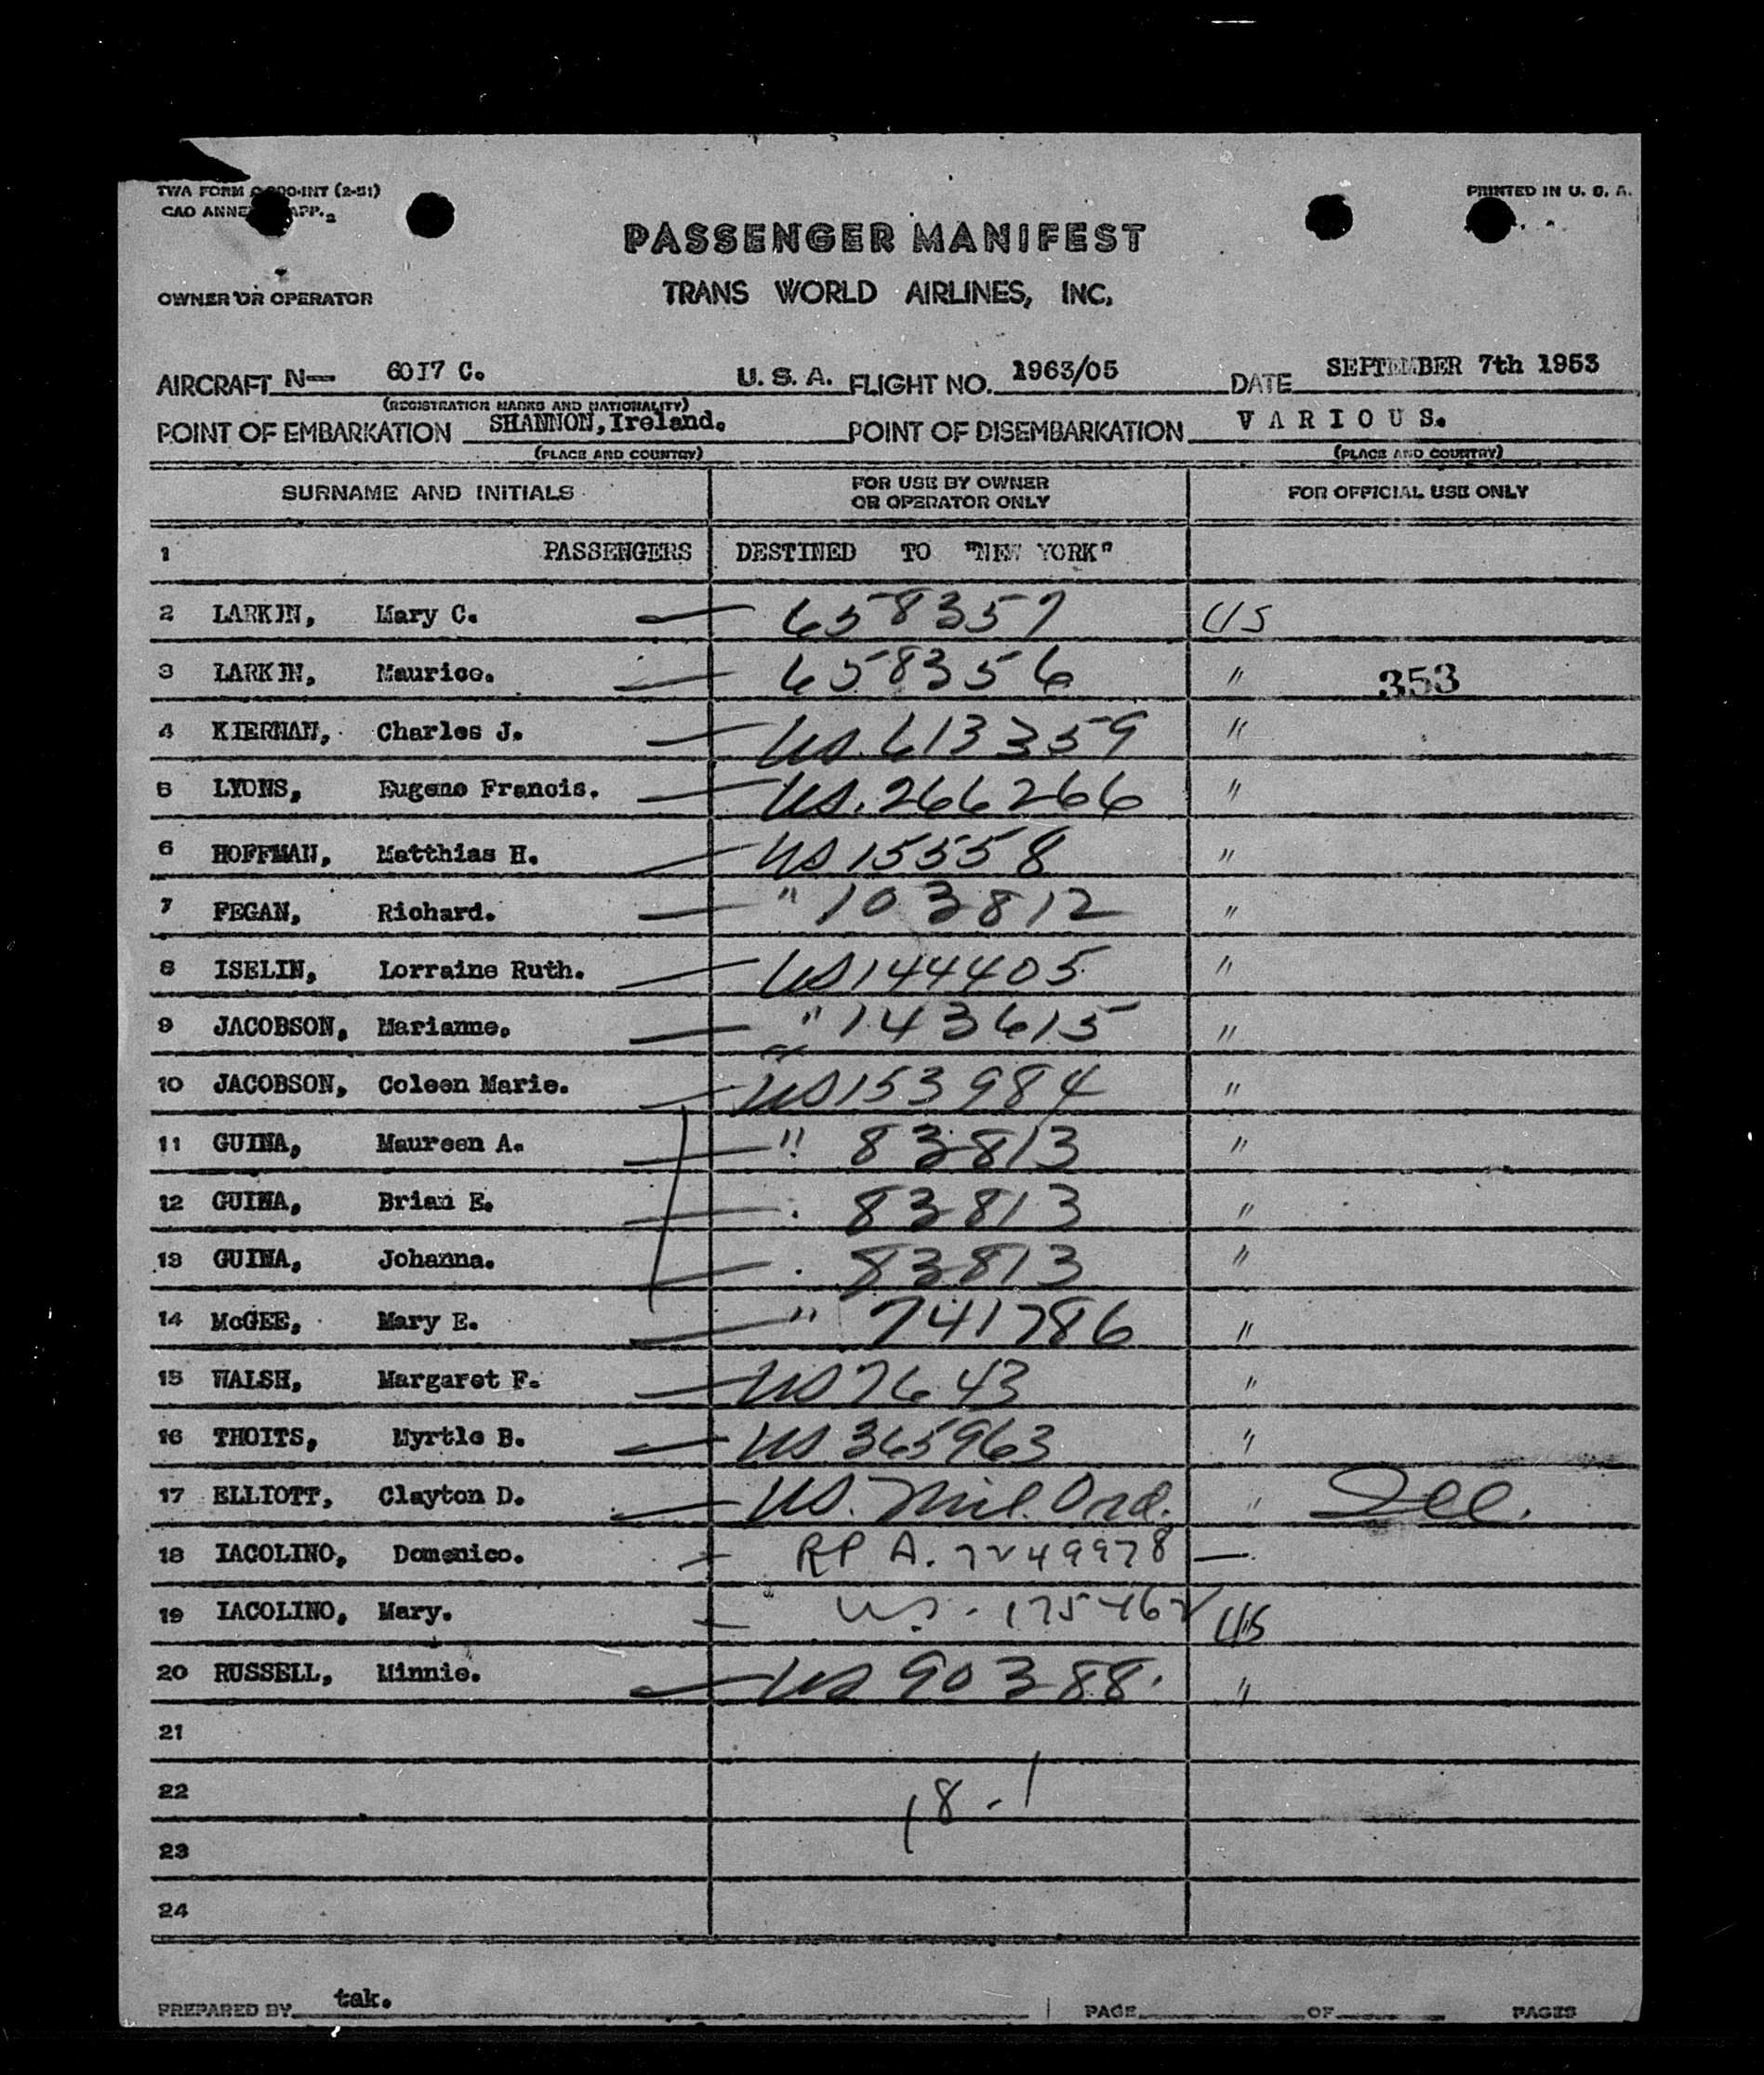 TWA FORM
PRINTED IN U. S. A.
PASSENGER MANIFEST
OWNER OR OPERATOR
TRANS WORLD AIRLINES, INC.
AIRCRAFT N— 6017 C. U. S. A. FLIGHT NO. 1963/05 DATE SEPTEMBER 7th 1953
(REGISTRATION MARKS AND NATIONALITY)
POINT OF EMBARKATION SHANNON, Ireland. POINT OF DISEMBARKATION V A R I O U S.
(PLACE AND COUNTRY) (PLACE AND COUNTRY)
SURNAME AND INITIALS FOR USE BY OWNER OR OPERATOR ONLY FOR OFFICIAL USE ONLY
1 PASSENGERS DESTINED TO "NEW YORK"
2 LARKIN, Mary C. — 658357 US
3 LARKIN, Maurice. — 658356 " 353
4 KIERNAN, Charles J. — US. 613359 "
5 LYONS, Eugene Francis. — US. 266266 "
6 HOFFMAN, Matthias H. — US 15558 "
7 FEGAN, Richard. — " 103812 "
8 ISELIN, Lorraine Ruth. — US 144405 "
9 JACOBSON, Marianne. — " 143615 "
10 JACOBSON, Coleen Marie. — US 153984 "
11 GUINA, Maureen A. — " 83813 "
12 GUINA, Brian E. — . 83813 "
13 GUINA, Johanna. — . 83813 "
14 McGEE, Mary E. — " 741786 "
15 WALSH, Margaret F. — US 7643 "
16 THOITS, Myrtle B. — US 365963 "
17 ELLIOTT, Clayton D. — US. Mil. Ord. "
18 IACOLINO, Domenico. RP A. 7249978 —
19 IACOLINO, Mary. US. 175462 US
20 RUSSELL, Minnie. — US 90388. "
21
22 18 - 1
23
24
PREPARED BY tak. PAGE OF PAGES